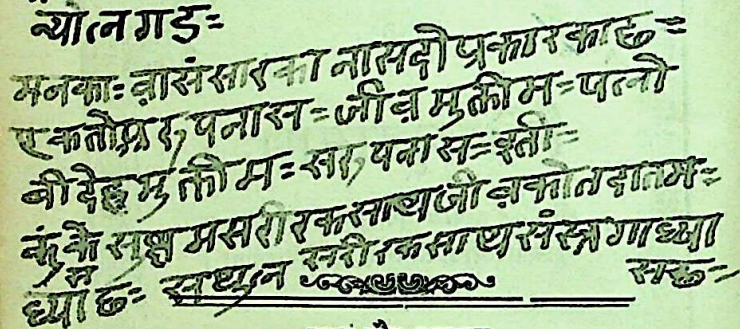 न्योलगड=
मनका: वासंसारका नासदोप्रकारकाछ=
एकतोप्ररुपनास=जीवमुक्तीम=पलो
बीदेहमुक्तीम=सरुपनास=इती=
कुंकै सुक्षमसरीरकसाथजीवकोतदातम=
ध्यास छ= सथुल सरीरकसाथसंसनगाध्या
सछ=